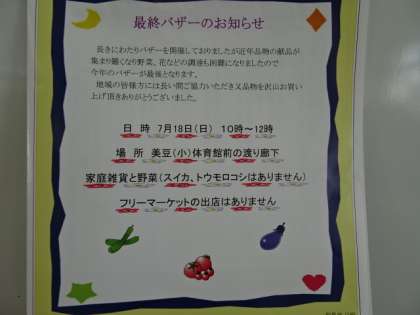 最終バザーのお知らせ
長きにわたりバザーを開催しておりましたが近年品物の献品が
集まり難くなり野菜、花などの調達も困難になりましたので
今年のバザーが最後となります。
地域の皆様方には長い間ご協力いただき又品物を沢山お買い
上げ頂きありがとうございました。
日 時 7月18日(日) 10時～12時
場 所 美豆(小)体育館前の渡り廊下
家庭雑貨と野菜(スイカ、トウモロコシはありません)
フリーマーケットの出店はありません